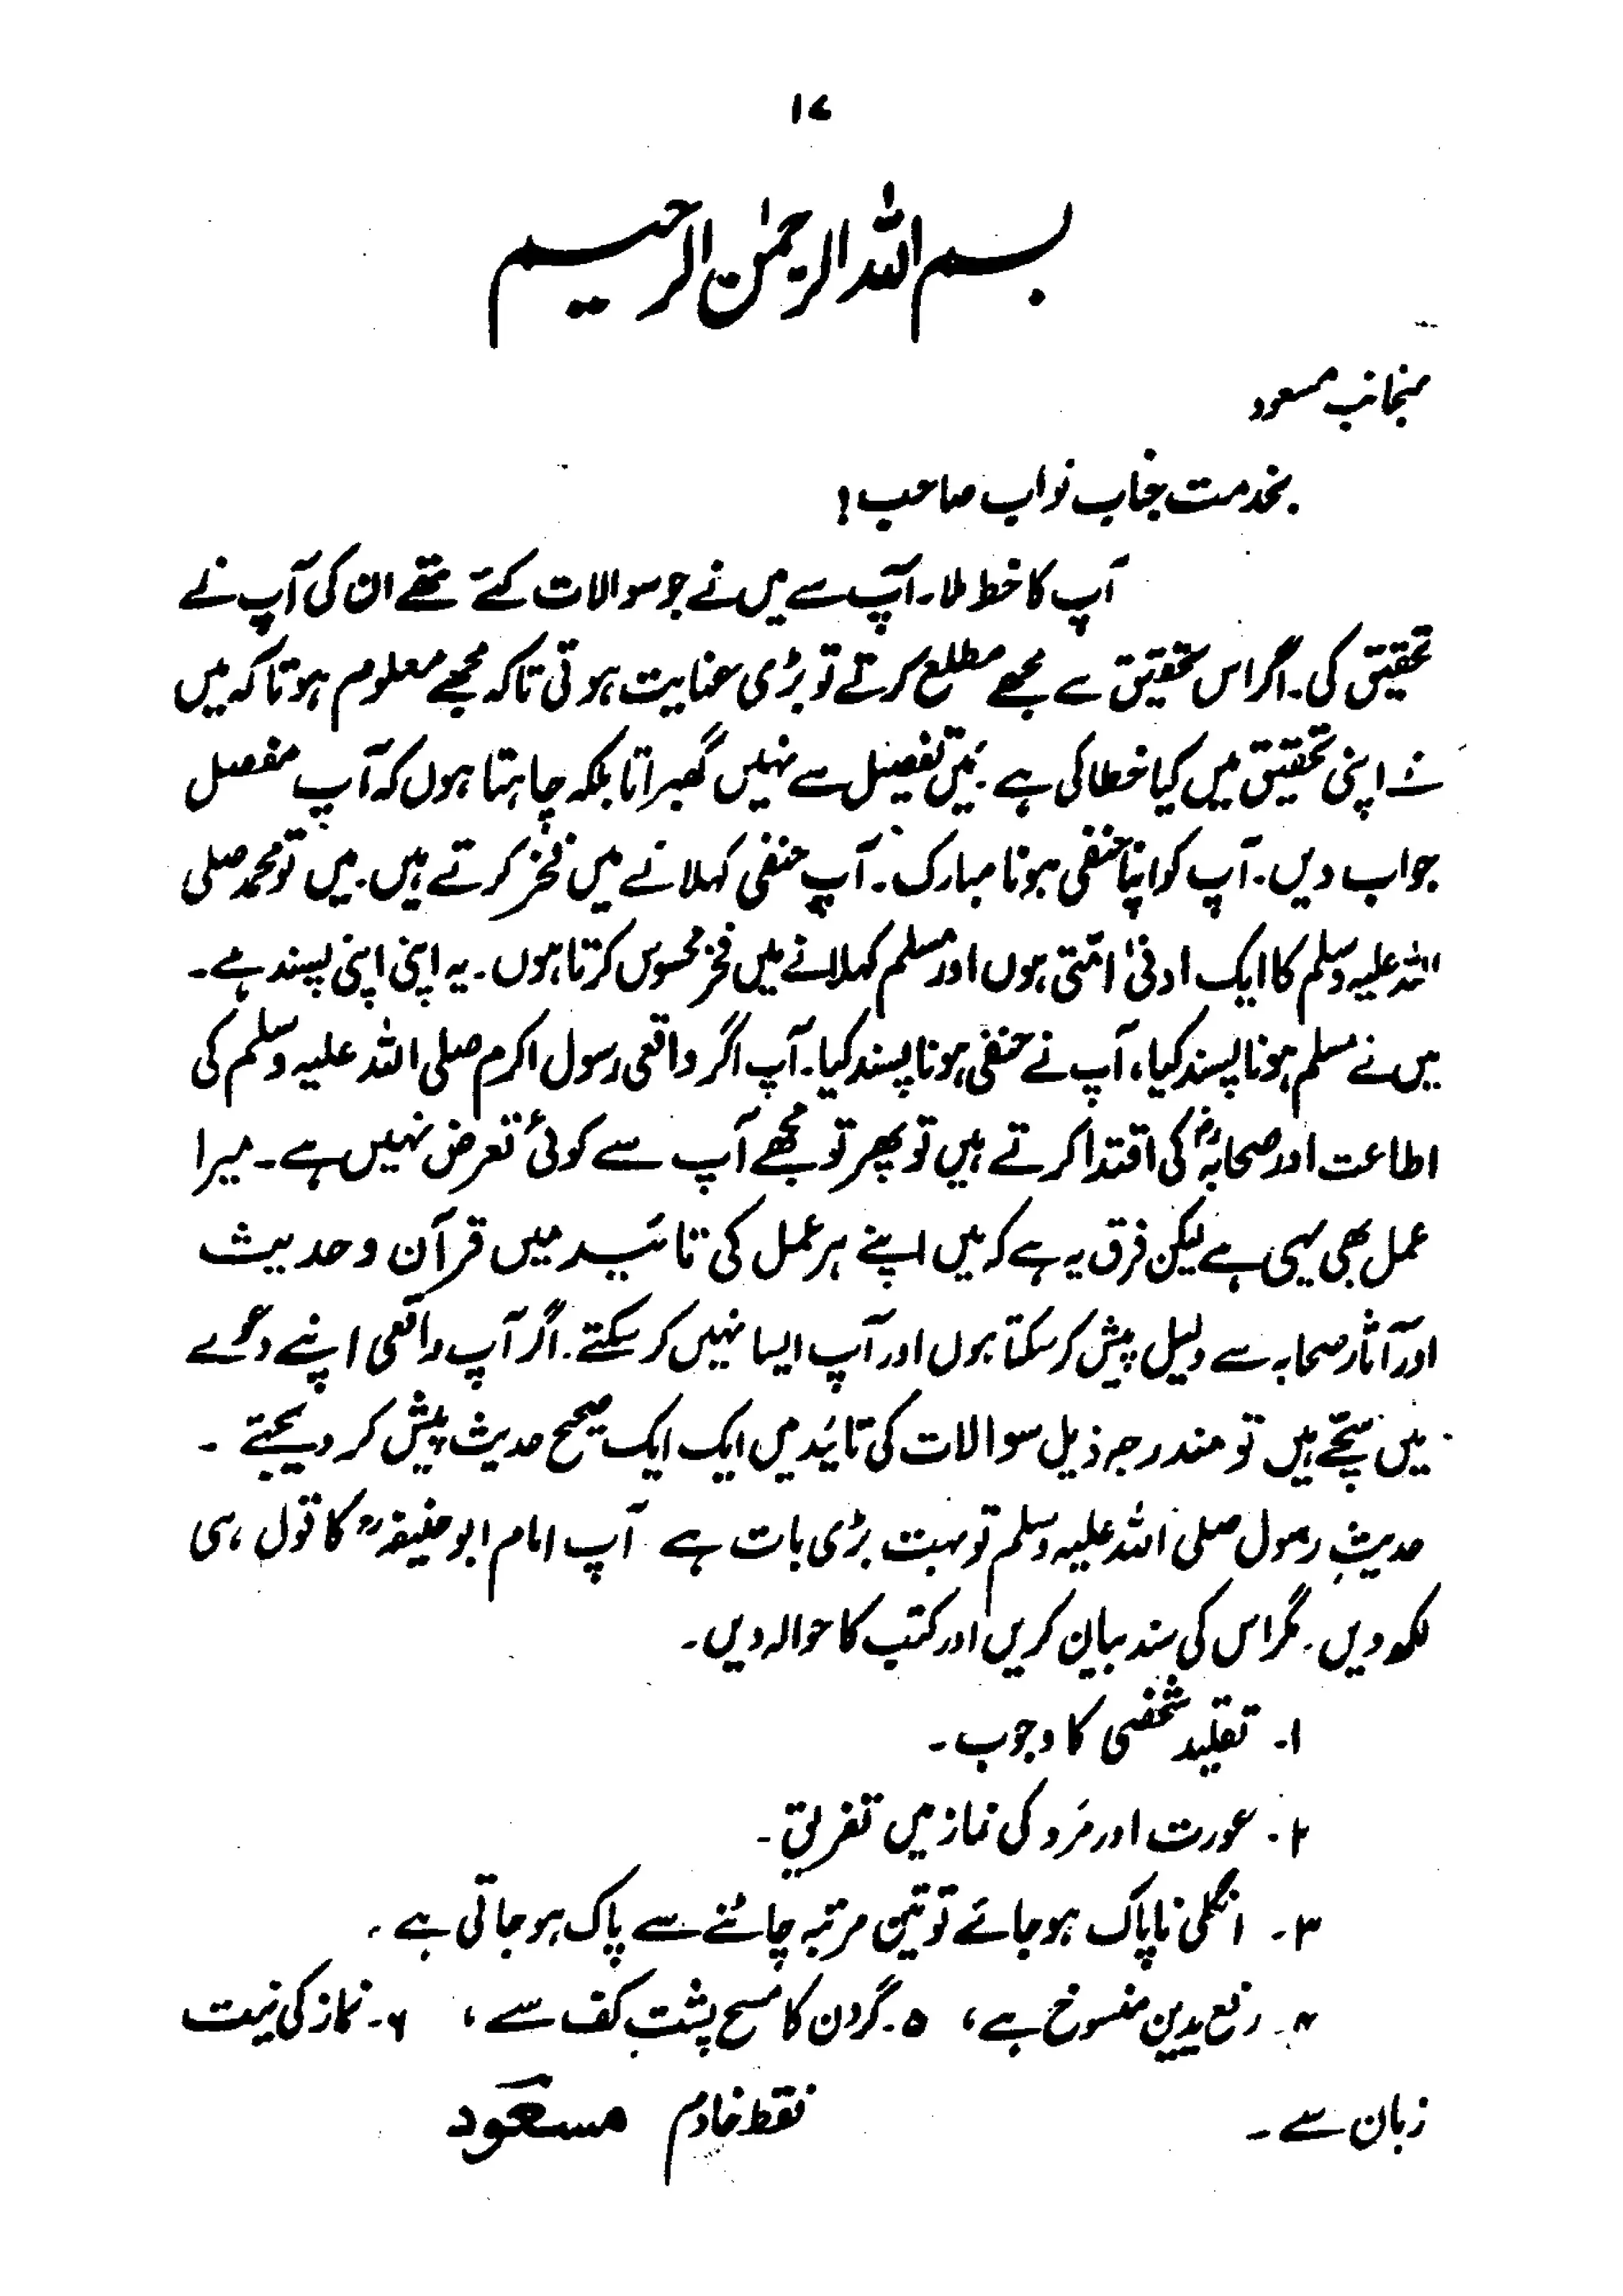 ۱۷
بسم اللہ الرحمٰن الرحیم
منجانب مسعود
بخدمت جناب نواب صاحب!
آپ کا خط ملا۔ آپ سے میں نے جو سوالات کئے تھے ان کی آپ نے
تحقیق کی۔ اگر اس تحقیق سے مجھے مطلع کرتے تو بڑی عنایت ہوتی تاکہ مجھے معلوم ہوتا کہ میں
نے اپنی تحقیق میں کیا خطا کی ہے۔ میں تفصیل سے نہیں گھبراتا بلکہ چاہتا ہوں کہ آپ مفصل
جواب دیں۔ آپ کو اپنا حنفی ہونا مبارک۔ آپ حنفی کہلانے میں فخر کرتے ہیں۔ میں تو محمد صلی
اللہ علیہ وسلم کا ایک ادنیٰ امّتی ہوں اور مسلم کہلانے میں فخر محسوس کرتا ہوں۔ یہ اپنی اپنی پسند ہے۔
میں نے مسلم ہونا پسند کیا، آپ نے حنفی ہونا پسند کیا۔ آپ اگر واقعی رسول اکرم صلی اللہ علیہ وسلم کی
اطاعت اور صحابہؓ کی اقتدا کرتے ہیں تو پھر تو مجھے آپ سے کوئی تعرض نہیں ہے۔ میرا
عمل بھی یہی ہے لیکن فرق یہ ہے کہ میں اپنے ہر عمل کی تائید میں قرآن و حدیث
اور آثار صحابہ سے دلیل پیش کر سکتا ہوں اور آپ ایسا نہیں کر سکتے۔ اگر آپ واقعی اپنے دعوے
میں سچّے ہیں تو مندرجہ ذیل سوالات کی تائید میں ایک ایک صحیح حدیث پیش کر دیجئے۔
حدیثِ رسول صلی اللہ علیہ وسلم تو بہت بڑی بات ہے آپ امام ابو حنیفہؒ کا قول ہی
لکھ دیں۔ مگر اس کی سند بیان کریں اور کتب کا حوالہ دیں۔
۱۔ تقلید شخصی کا وجوب۔
۲۔ عورت اور مرد کی نماز میں تفریق۔
۳۔ انگلی ناپاک ہو جائے تو تین مرتبہ چاٹنے سے پاک ہو جاتی ہے۔
۴۔ رفع یدین منسوخ ہے، ۵۔ گردن کا مسح پشتِ کف سے، ۶۔ نماز کی نیت
زبان سے۔ فقط خادم مسعود